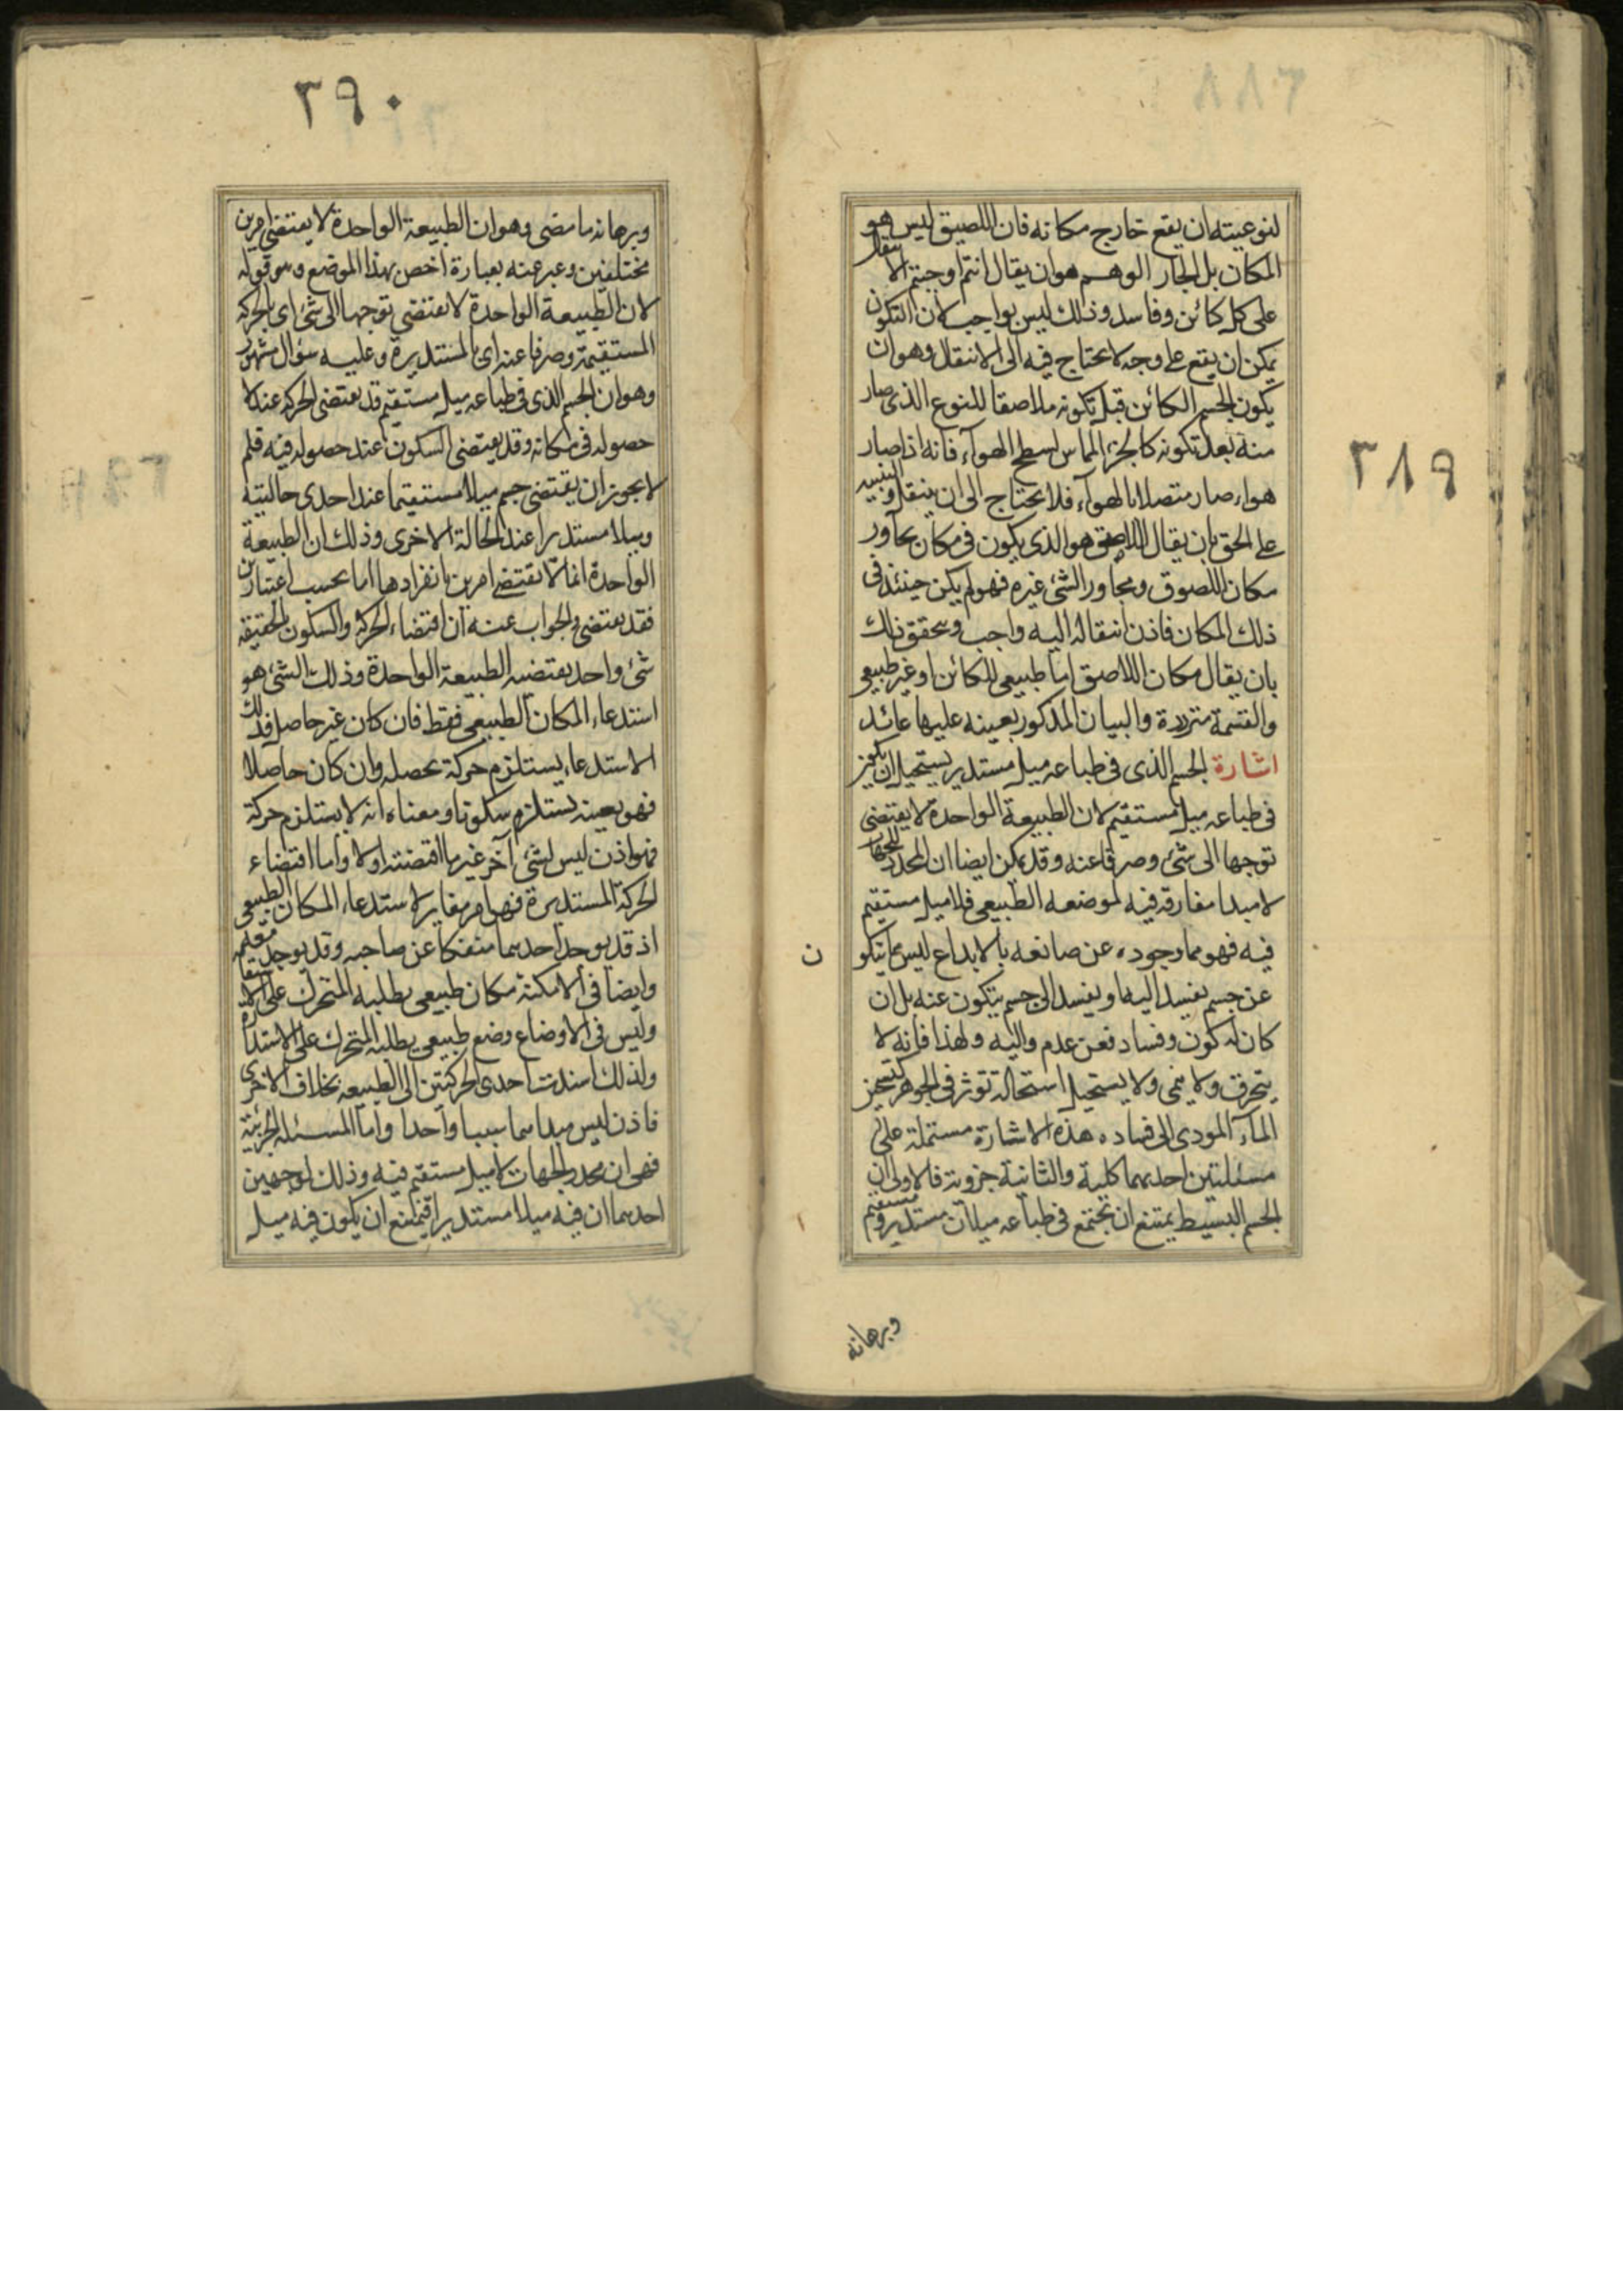 ٣٨٩
لنوعيته ان يقع خارج مكانه فان اللصيق ليس هو
المكان بل الجار الوهم هو ان يقال انتم اوجبتم الانتقال
على كل كائن وفاسد وذلك ليس بواجب لان التكون
يمكن ان يقع على وجه لا يحتاج فيه الى الانتقال وهو ان
يكون الجسم الكائن قبل تكونه ملاصقا للنوع الذى صار
منه بعد تكونه كالجزء المماس لسطح الهوآء فانه اذا صار
هواء صار متصلا بالهوآء فلا يحتاج الى ان ينتقل والتنبيه
على الحق بان يقال اللاصق هو الذى يكون فى مكان يجاور
مكان اللصوق ومجاور الشئ غيره فهو لم يكن حينئذ فى
ذلك المكان فاذن انتقاله اليه واجب ويتحقق ذلك
بان يقال مكان اللاصق اما طبيعى للكائن او غير طبيعى
والقسمة مترددة والبيان المذكور بعينه عليها عائد
اشارة الجسم الذى فى طباعه ميل مستدير يستحيل ان يكون
فى طباعه ميل مستقيم لان الطبيعة الواحدة لا يقتضى
توجها الى شئ وصرفا عنه وقد يمكن ايضا ان المحدد للجهات
لا مبدا مفارقه فيه لموضعه الطبيعى فلا ميل مستقيم
فيه فهو مما وجوده عن صانعه بالابداع ليس مما يتكو ن
عن جسم يفسد اليه او يفسد الى جسم يتكون عنه بل ان
كان له كون وفساد فعن عدم واليه ولهذا فانه لا
يتخرق ولا ينمى ولا يستحيل استحالة تؤثر فى الجوهر كتسخين
المآء المودى الى فساده هذه الاشارة مشتملة على
مسئلتين احديهما كلية والثانية جزوية فالاولى ان
الجسم البسيط يمتنع ان يجتمع فى طباعه ميلان مستدير ومستقيم
وبرهانه
٣٩٠
وبرهانه ما مضى وهو ان الطبيعة الواحدة لا يقتضى امرين
مختلفين وعبر عنه بعبارة اخص بهذا الموضع وهو قوله
لان الطبيعة الواحدة لا تقتضى توجها الى شئ اى بالحركة
المستقيمة وصرفا عنه اى بالمستديرة وعليه سؤال مشهور
وهو ان الجسم الذى فى طباعه ميل مستقيم قد يقتضى الحركة عند لا
حصوله فى مكانه وقد يقتضى السكون عند حصوله فيه فلم
لا يجوز ان يقتضى جسم ميلا مستقيما عند احدى حالتيه
وميلا مستديرا عند الحالة الاخرى وذلك ان الطبيعة
الواحدة انما لا تقتضى امرين بانفرادها اما بحسب اعتبارين
فقد يقتضى والجواب عنه ان اقتضاء الحركة والسكون بالحقيقة
شئ واحد يقتضيه الطبيعة الواحدة وذلك الشئ هو
استدعاء المكان الطبيعى فقط فان كان غير حاصل فذلك
الاستدعاء يستلزم حركة تحصله وان كان حاصلا
فهو بعينه يستلزم سكونا ومعناه انه لا يستلزم حركة
فهو اذن ليس لشئ آخر غير ما اقتضته اولا واما اقتضاء
الحركة المستديرة فهو امر مغاير لاستدعاء المكان الطبيعى
اذ قد يوجد احدهما منفكا عن صاحبه وقد يوجد معه
وايضا فى الامكنة مكان طبيعى يطلبه المتحرك على الاستقامة
وليس فى الاوضاع وضع طبيعى يطلبه المتحرك على الاستدارة
ولذلك اسندت احدى الحركتين الى الطبيعه بخلاف الاخرى
فاذن ليس مبداهما سببا واحدا واما المسئلة الجزئية
فهى ان محدد الجهات لا ميل مستقيم فيه وذلك لوجهين
احدهما ان فيه ميلا مستديرا فيمتنع ان يكون فيه ميل